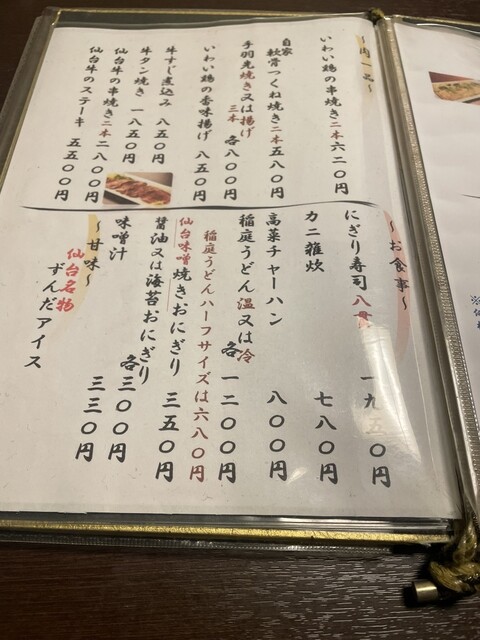 ～肉一品～
いわい鶏の串焼き二本 六二〇円
自家
軟骨つくね焼き二本 五八〇円
手羽先焼き又は揚げ
三本 各八〇〇円
いわい鶏の香味揚げ 八五〇円
牛すじ煮込み 八五〇円
牛タン焼き 一八五〇円
仙台牛の串焼き二本 二八〇〇円
仙台牛のステーキ 五五〇〇円
～お食事～
にぎり寿司八貫 一九五〇円
カニ雑炊 七八〇円
高菜チャーハン 八〇〇円
稲庭うどん温又は冷
各一二〇〇円
稲庭うどんハーフサイズは六八〇円
仙台味噌焼きおにぎり 三五〇円
醤油又は海苔おにぎり
各三〇〇円
味噌汁 三三〇円
～甘味～
仙台名物
ずんだアイス 三三〇円